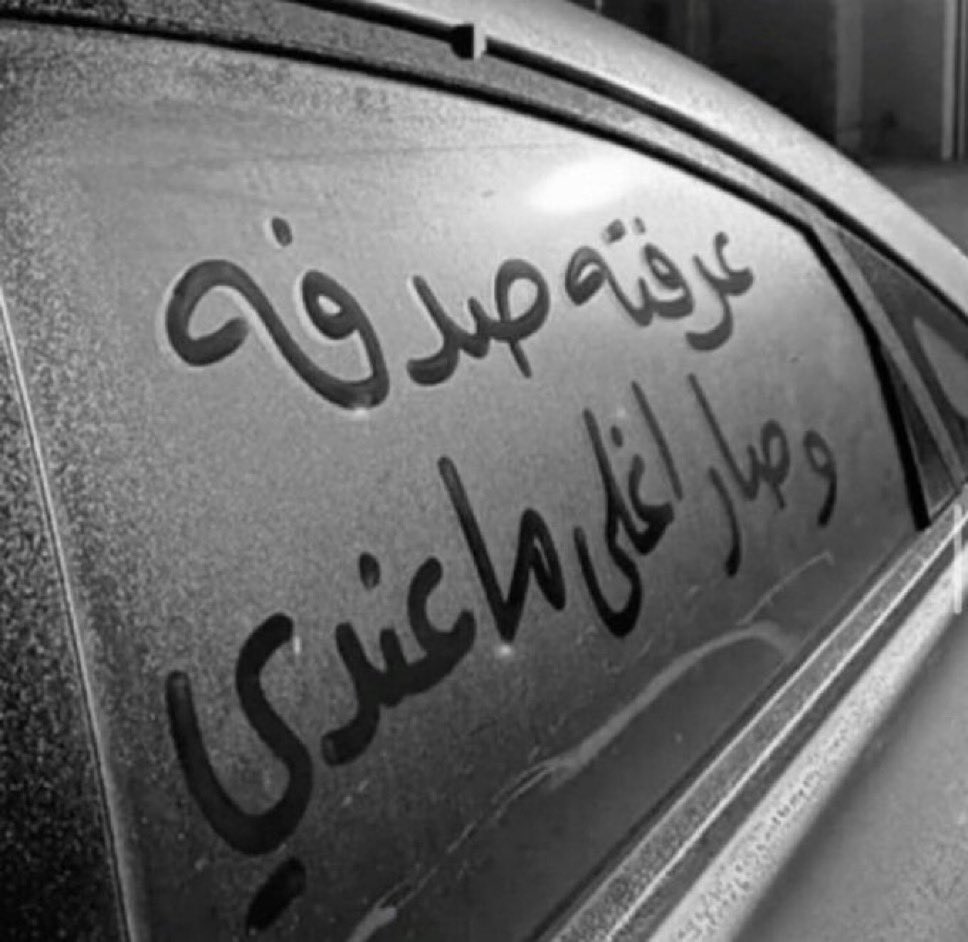 عرفته صدفه
وصار اغلى ما عندي